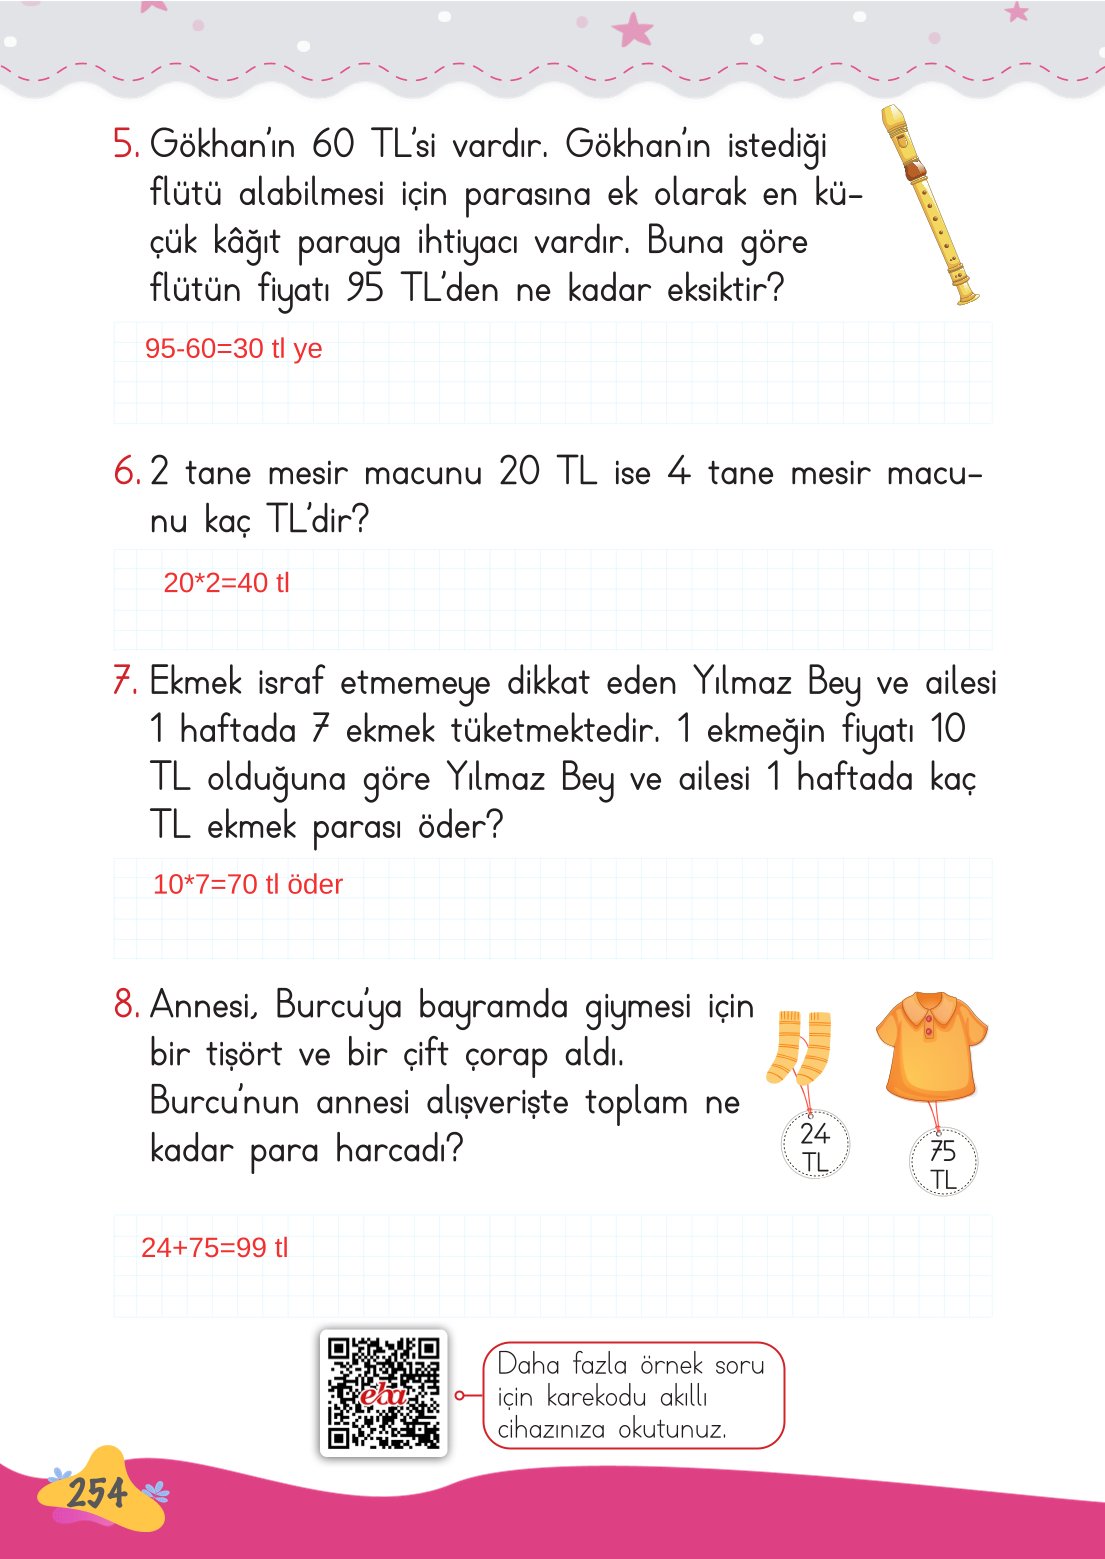 5. Gökhan'ın 60 TL'si vardır. Gökhan'ın istediği
flütü alabilmesi için parasına ek olarak en kü-
çük kâğıt paraya ihtiyacı vardır. Buna göre
flütün fiyatı 95 TL'den ne kadar eksiktir?
95-60=30 tl ye
6. 2 tane mesir macunu 20 TL ise 4 tane mesir macu-
nu kaç TL'dir?
20*2=40 tl
7. Ekmek israf etmemeye dikkat eden Yılmaz Bey ve ailesi
1 haftada 7 ekmek tüketmektedir. 1 ekmeğin fiyatı 10
TL olduğuna göre Yılmaz Bey ve ailesi 1 haftada kaç
TL ekmek parası öder?
10*7=70 tl öder
8. Annesi, Burcu'ya bayramda giymesi için
bir tişört ve bir çift çorap aldı.
Burcu'nun annesi alışverişte toplam ne
kadar para harcadı?
24
TL
75
TL
24+75=99 tl
eba
Daha fazla örnek soru
için karekodu akıllı
cihazınıza okutunuz.
254